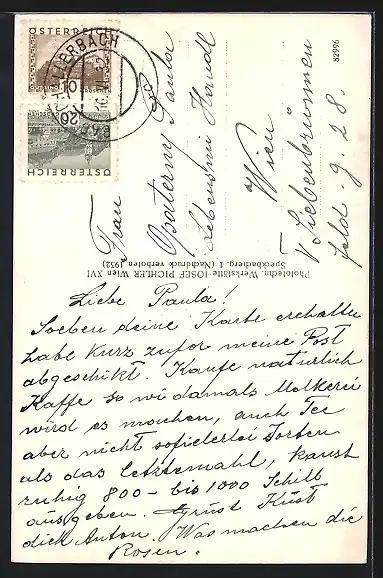 ÖSTERREICH
10 GROSCHEN
20
ÖSTERREICH
82996
Frau
Opaterny Paula
Lebensm Handl
Wien
V Siebenbrunnen
feld. 9. 28.
Phototechn. Werkstätte JOSEF PICHLER Wien XVI
Speckbacherg. 1 (Nachdruck verboten 1932)
Liebe Paula!
Soeben deine Karte erchalten
habe kurz zufor meine Post
abgeschikt. Kaufe natürlich
Kaffe so wi damals Molkerei
wird es machen, auch Tee
aber nicht sofielerlei Sorten
als das letztemahl, kanst
ruhig 800 - bis 1000 Schill
ausgeben. Grüst Küst
dich Anton. Was machen die
Rosen.